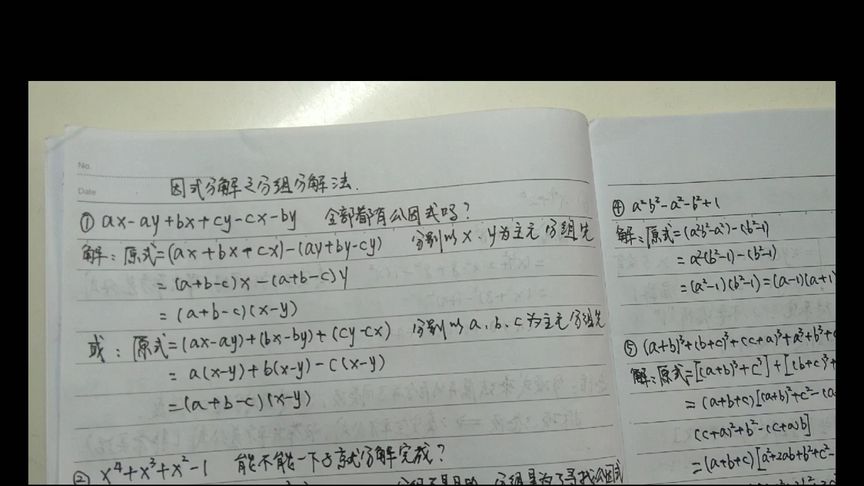 No.
Date
因式分解之分组分解法.
① ax-ay+bx+cy-cx-by 全部都有公因式吗?
解:原式=(ax+bx-cx)-(ay+by-cy) 分别以x、y为主元分组先
=(a+b-c)x-(a+b-c)y
=(a+b-c)(x-y)
或:原式=(ax-ay)+(bx-by)+(cy-cx) 分别以a、b、c为主元分组先
=a(x-y)+b(x-y)-c(x-y)
=(a+b-c)(x-y)
② x⁴+x³+x²-1 能不能一下子就分解完成?
分组是为了寻找公因式
④ a²b²-a²-b²+1
解:原式=(a²b²-a²)-(b²-1)
=a²(b²-1)-(b²-1)
=(a²-1)(b²-1)=(a-1)(a+1)
⑤ (a+b)³+(b+c)³+(c+a)³+a³+b³+c
解:原式=[(a+b)³+c³]+[(b+c)³+
=(a+b+c)[(a+b)²+c²-(a
(c+a)²+b²-(c+a)b]
=(a+b+c)[a²+2ab+b²+c²-